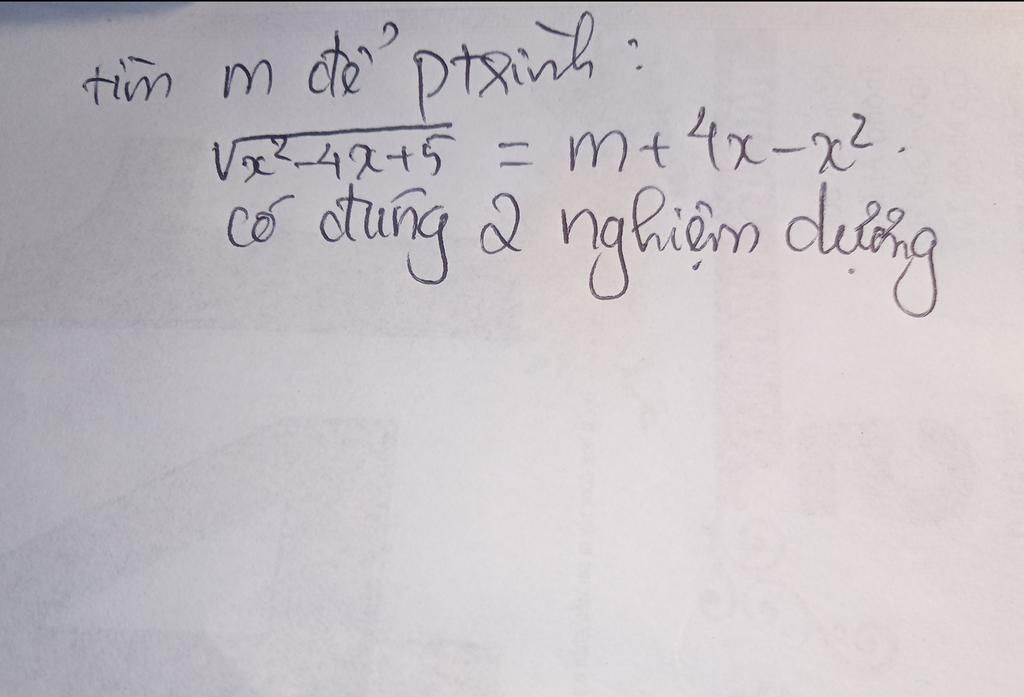 tìm m để ptrình:
√x²-4x+5 = m + 4x - x².
có đúng 2 nghiệm dương